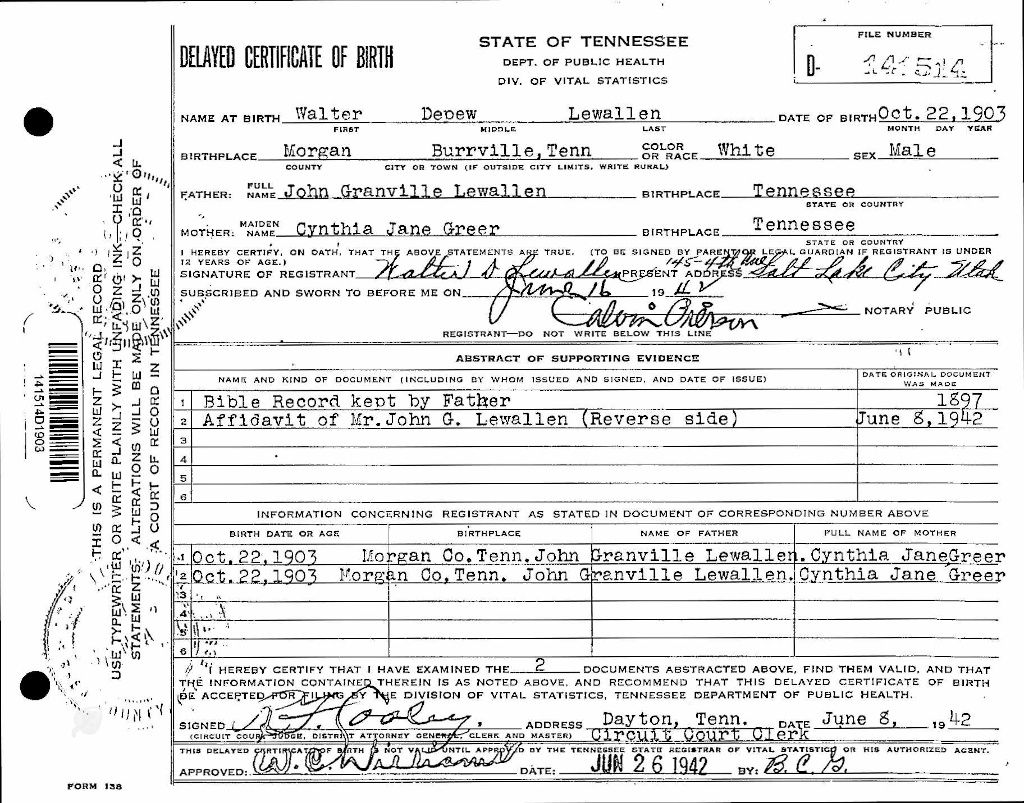 DELAYED CERTIFICATE OF BIRTH
STATE OF TENNESSEE
DEPT. OF PUBLIC HEALTH
DIV. OF VITAL STATISTICS
FILE NUMBER
D- 141514
NAME AT BIRTH Walter Depew Lewallen DATE OF BIRTH Oct. 22, 1903
FIRST MIDDLE LAST MONTH DAY YEAR
BIRTHPLACE Morgan Burrville, Tenn COLOR OR RACE White SEX Male
COUNTY CITY OR TOWN (IF OUTSIDE CITY LIMITS, WRITE RURAL)
FATHER: FULL NAME John Granville Lewallen BIRTHPLACE Tennessee
STATE OR COUNTRY
MOTHER: MAIDEN NAME Cynthia Jane Greer BIRTHPLACE Tennessee
STATE OR COUNTRY
I HEREBY CERTIFY, ON OATH, THAT THE ABOVE STATEMENTS ARE TRUE. (TO BE SIGNED BY PARENT OR LEGAL GUARDIAN IF REGISTRANT IS UNDER
12 YEARS OF AGE.)
SIGNATURE OF REGISTRANT Walter D Lewallen PRESENT ADDRESS Salt Lake City, Utah
SUBSCRIBED AND SWORN TO BEFORE ME ON June 16 1942
Calvin NOTARY PUBLIC
REGISTRANT—DO NOT WRITE BELOW THIS LINE
ABSTRACT OF SUPPORTING EVIDENCE
NAME AND KIND OF DOCUMENT (INCLUDING BY WHOM ISSUED AND SIGNED, AND DATE OF ISSUE) DATE ORIGINAL DOCUMENT WAS MADE
1 Bible Record kept by Father 1897
2 Affidavit of Mr. John G. Lewallen (Reverse side) June 8, 1942
3
4
5
6
INFORMATION CONCERNING REGISTRANT AS STATED IN DOCUMENT OF CORRESPONDING NUMBER ABOVE
BIRTH DATE OR AGE BIRTHPLACE NAME OF FATHER FULL NAME OF MOTHER
1 Oct. 22, 1903 Morgan Co. Tenn. John Granville Lewallen. Cynthia Jane Greer
2 Oct. 22, 1903 Morgan Co, Tenn. John Granville Lewallen. Cynthia Jane Greer
3
4
5
6
I HEREBY CERTIFY THAT I HAVE EXAMINED THE 2 DOCUMENTS ABSTRACTED ABOVE, FIND THEM VALID, AND THAT
THE INFORMATION CONTAINED THEREIN IS AS NOTED ABOVE, AND RECOMMEND THAT THIS DELAYED CERTIFICATE OF BIRTH
BE ACCEPTED FOR FILING BY THE DIVISION OF VITAL STATISTICS, TENNESSEE DEPARTMENT OF PUBLIC HEALTH.
SIGNED Cooley, ADDRESS Dayton, Tenn. DATE June 8, 1942
(CIRCUIT COURT JUDGE, DISTRICT ATTORNEY GENERAL, CLERK AND MASTER) Circuit Court Clerk
THIS DELAYED CERTIFICATE OF BIRTH IS NOT VALID UNTIL APPROVED BY THE TENNESSEE STATE REGISTRAR OF VITAL STATISTICS OR HIS AUTHORIZED AGENT.
APPROVED: W. C. Williams DATE: JUN 26 1942 BY: B. C. G.
FORM 138
141514D1903
THIS IS A PERMANENT LEGAL RECORD
USE TYPEWRITER OR WRITE PLAINLY WITH UNFADING INK—CHECK ALL
STATEMENTS; ALTERATIONS WILL BE MADE ONLY ON ORDER OF
A COURT OF RECORD IN TENNESSEE